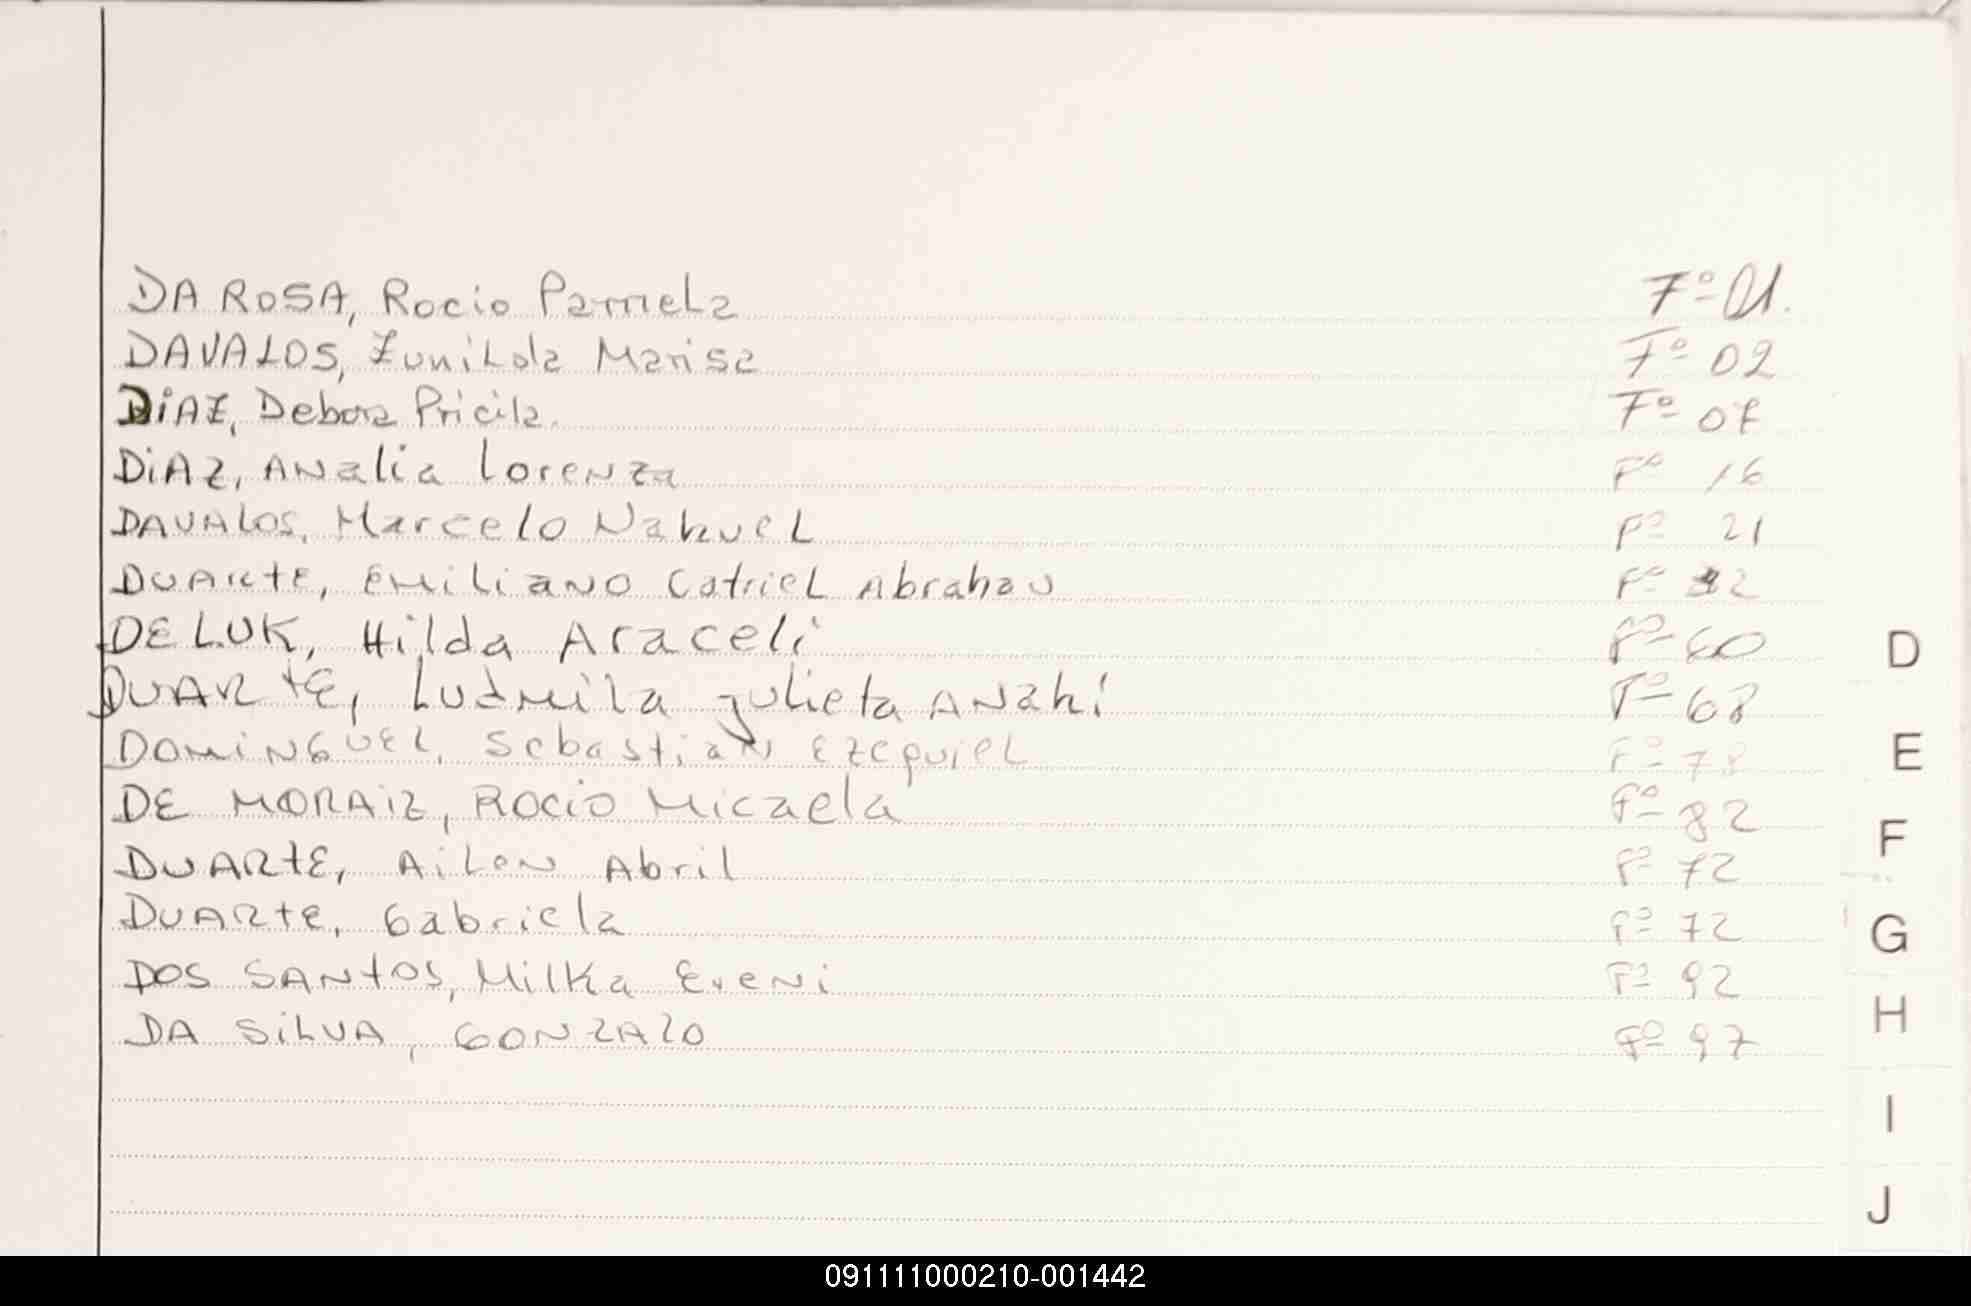 DA ROSA, Rocio Pamela Fº 01.
DAVALOS, Zunilda Marisa Fº 02
DiAZ, Debora Pricila. Fº 07
DiAZ, ANalia Lorenza Fº 16
DAVALOS, Marcelo Nahuel Fº 21
DUARTE, EMILIANO Catriel Abrahan Fº 2
DELUK, Hilda Araceli Fº 60
DUARTE, LudMila Julieta ANahi Fº 68
DOMINGUEL, Sebastian Ezequiel Fº 78
DE MORAiZ, ROCIO Micaela Fº 82
DUARTE, AiLeN Abril Fº 72
DUARTE, Gabriela Fº 72
DOS SANTOS, Milka EveNi Fº 92
DA SiLVA, GONZALO Fº 97
D
E
F
G
H
I
J
091111000210-001442